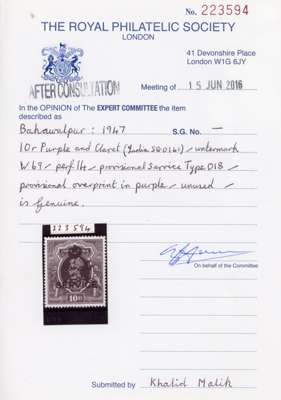 No. 223594
THE ROYAL PHILATELIC SOCIETY
LONDON
41 Devonshire Place
London W1G 6JY
AFTER CONSULTATION
Meeting of 15 JUN 2016
In the OPINION of The EXPERT COMMITTEE the item
described as
Bahawalpur: 1947 S.G. No. —
10r Purple and Claret (India SG O161) / watermark
W69 / perf 14 / provisional service Type O18 /
provisional overprint in purple / unused /
is Genuine.
223594
SERVICE
10R
On behalf of the Committee
Submitted by Khalid Malik